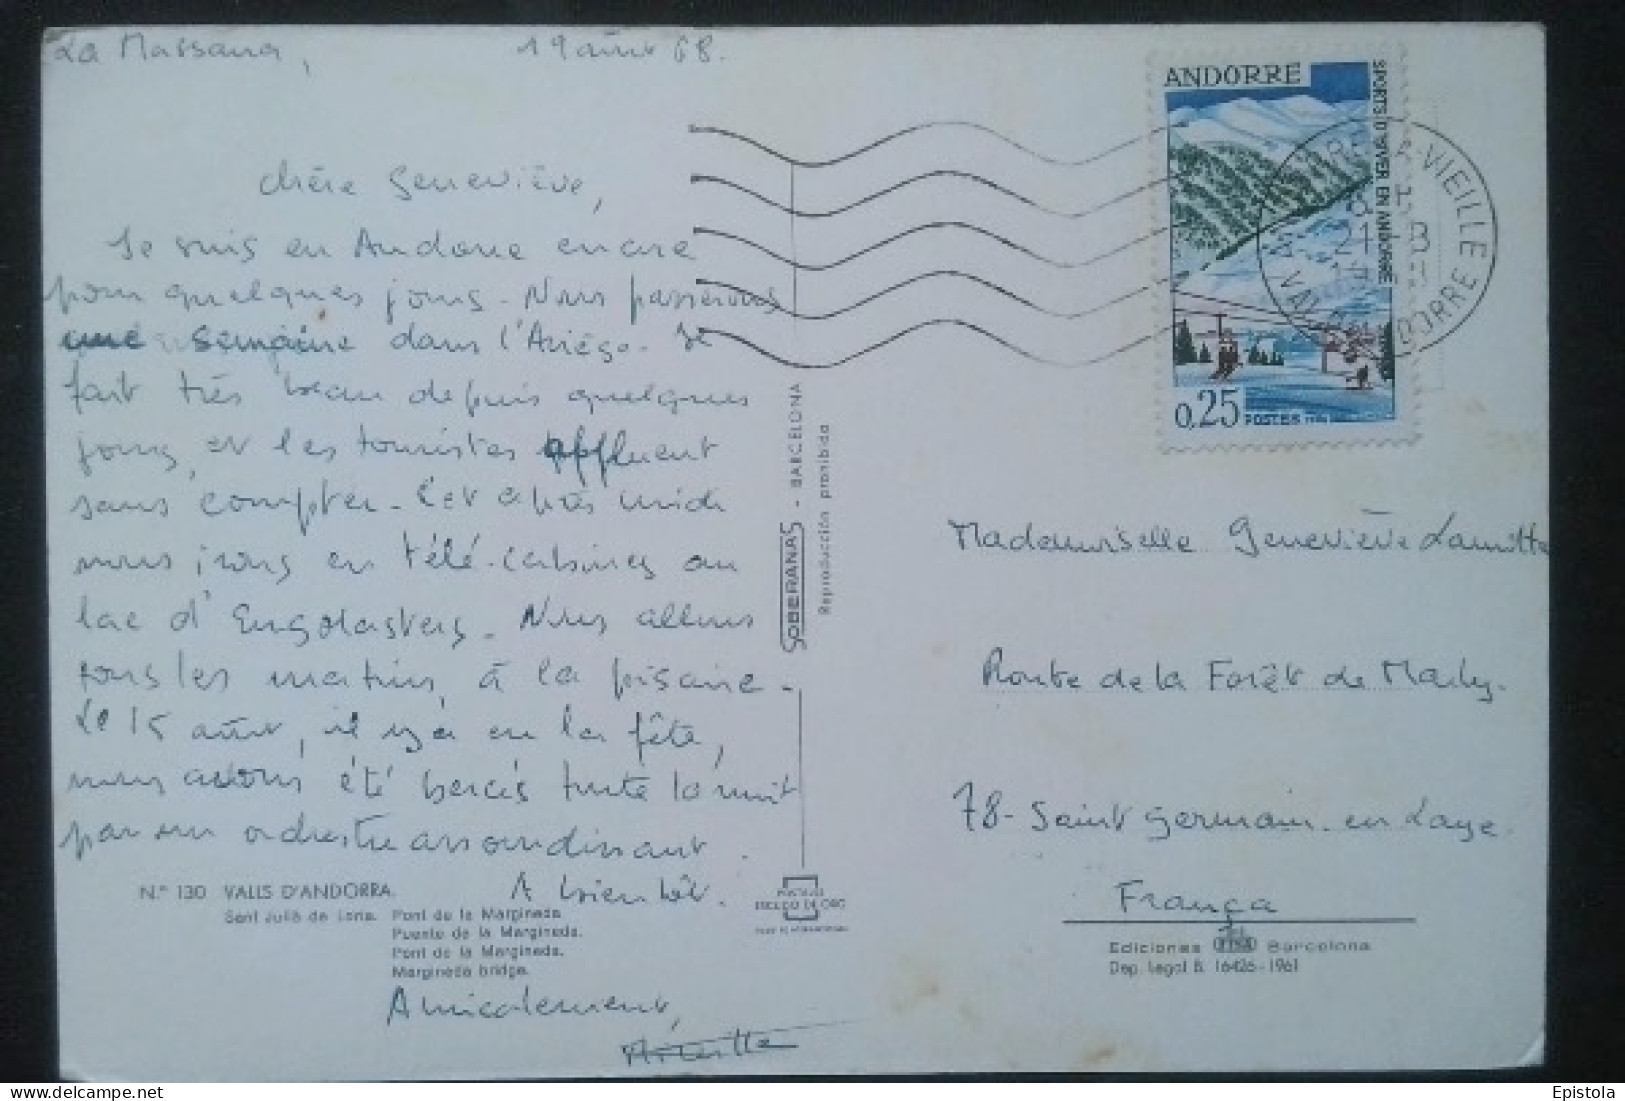 La Massana, 19 août 68.
Chère Geneviève,
Je suis en Andorre encore
pour quelques jours. Nous passerons
une semaine dans l'Ariège. Il
fait très beau depuis quelques
jours, et les touristes affluent
sans compter. Cet après midi
nous irons en télé-cabines au
lac d'Engolasters. Nous allons
tous les matins, à la piscine.
Le 15 août, il y a eu la fête,
nous avons été bercés toute la nuit
par un orchestre assourdissant.
A bientôt.
Amicalement,
N.º 130 VALLS D'ANDORRA.
Sant Julià de Loria. Pont de la Margineda.
Puente de la Margineda.
Pont de la Margineda.
Margineda bridge.
SOBERANAS - BARCELONA
Reproducción prohibida
ANDORRE
SPORTS D'HIVER EN ANDORRE
0,25 POSTES
Mademoiselle Geneviève
Route de la Forêt de Marly.
78- Saint Germain. en Laye.
França
Ediciones Barcelona
Dep. Legal B. 16426-1961
Epistola